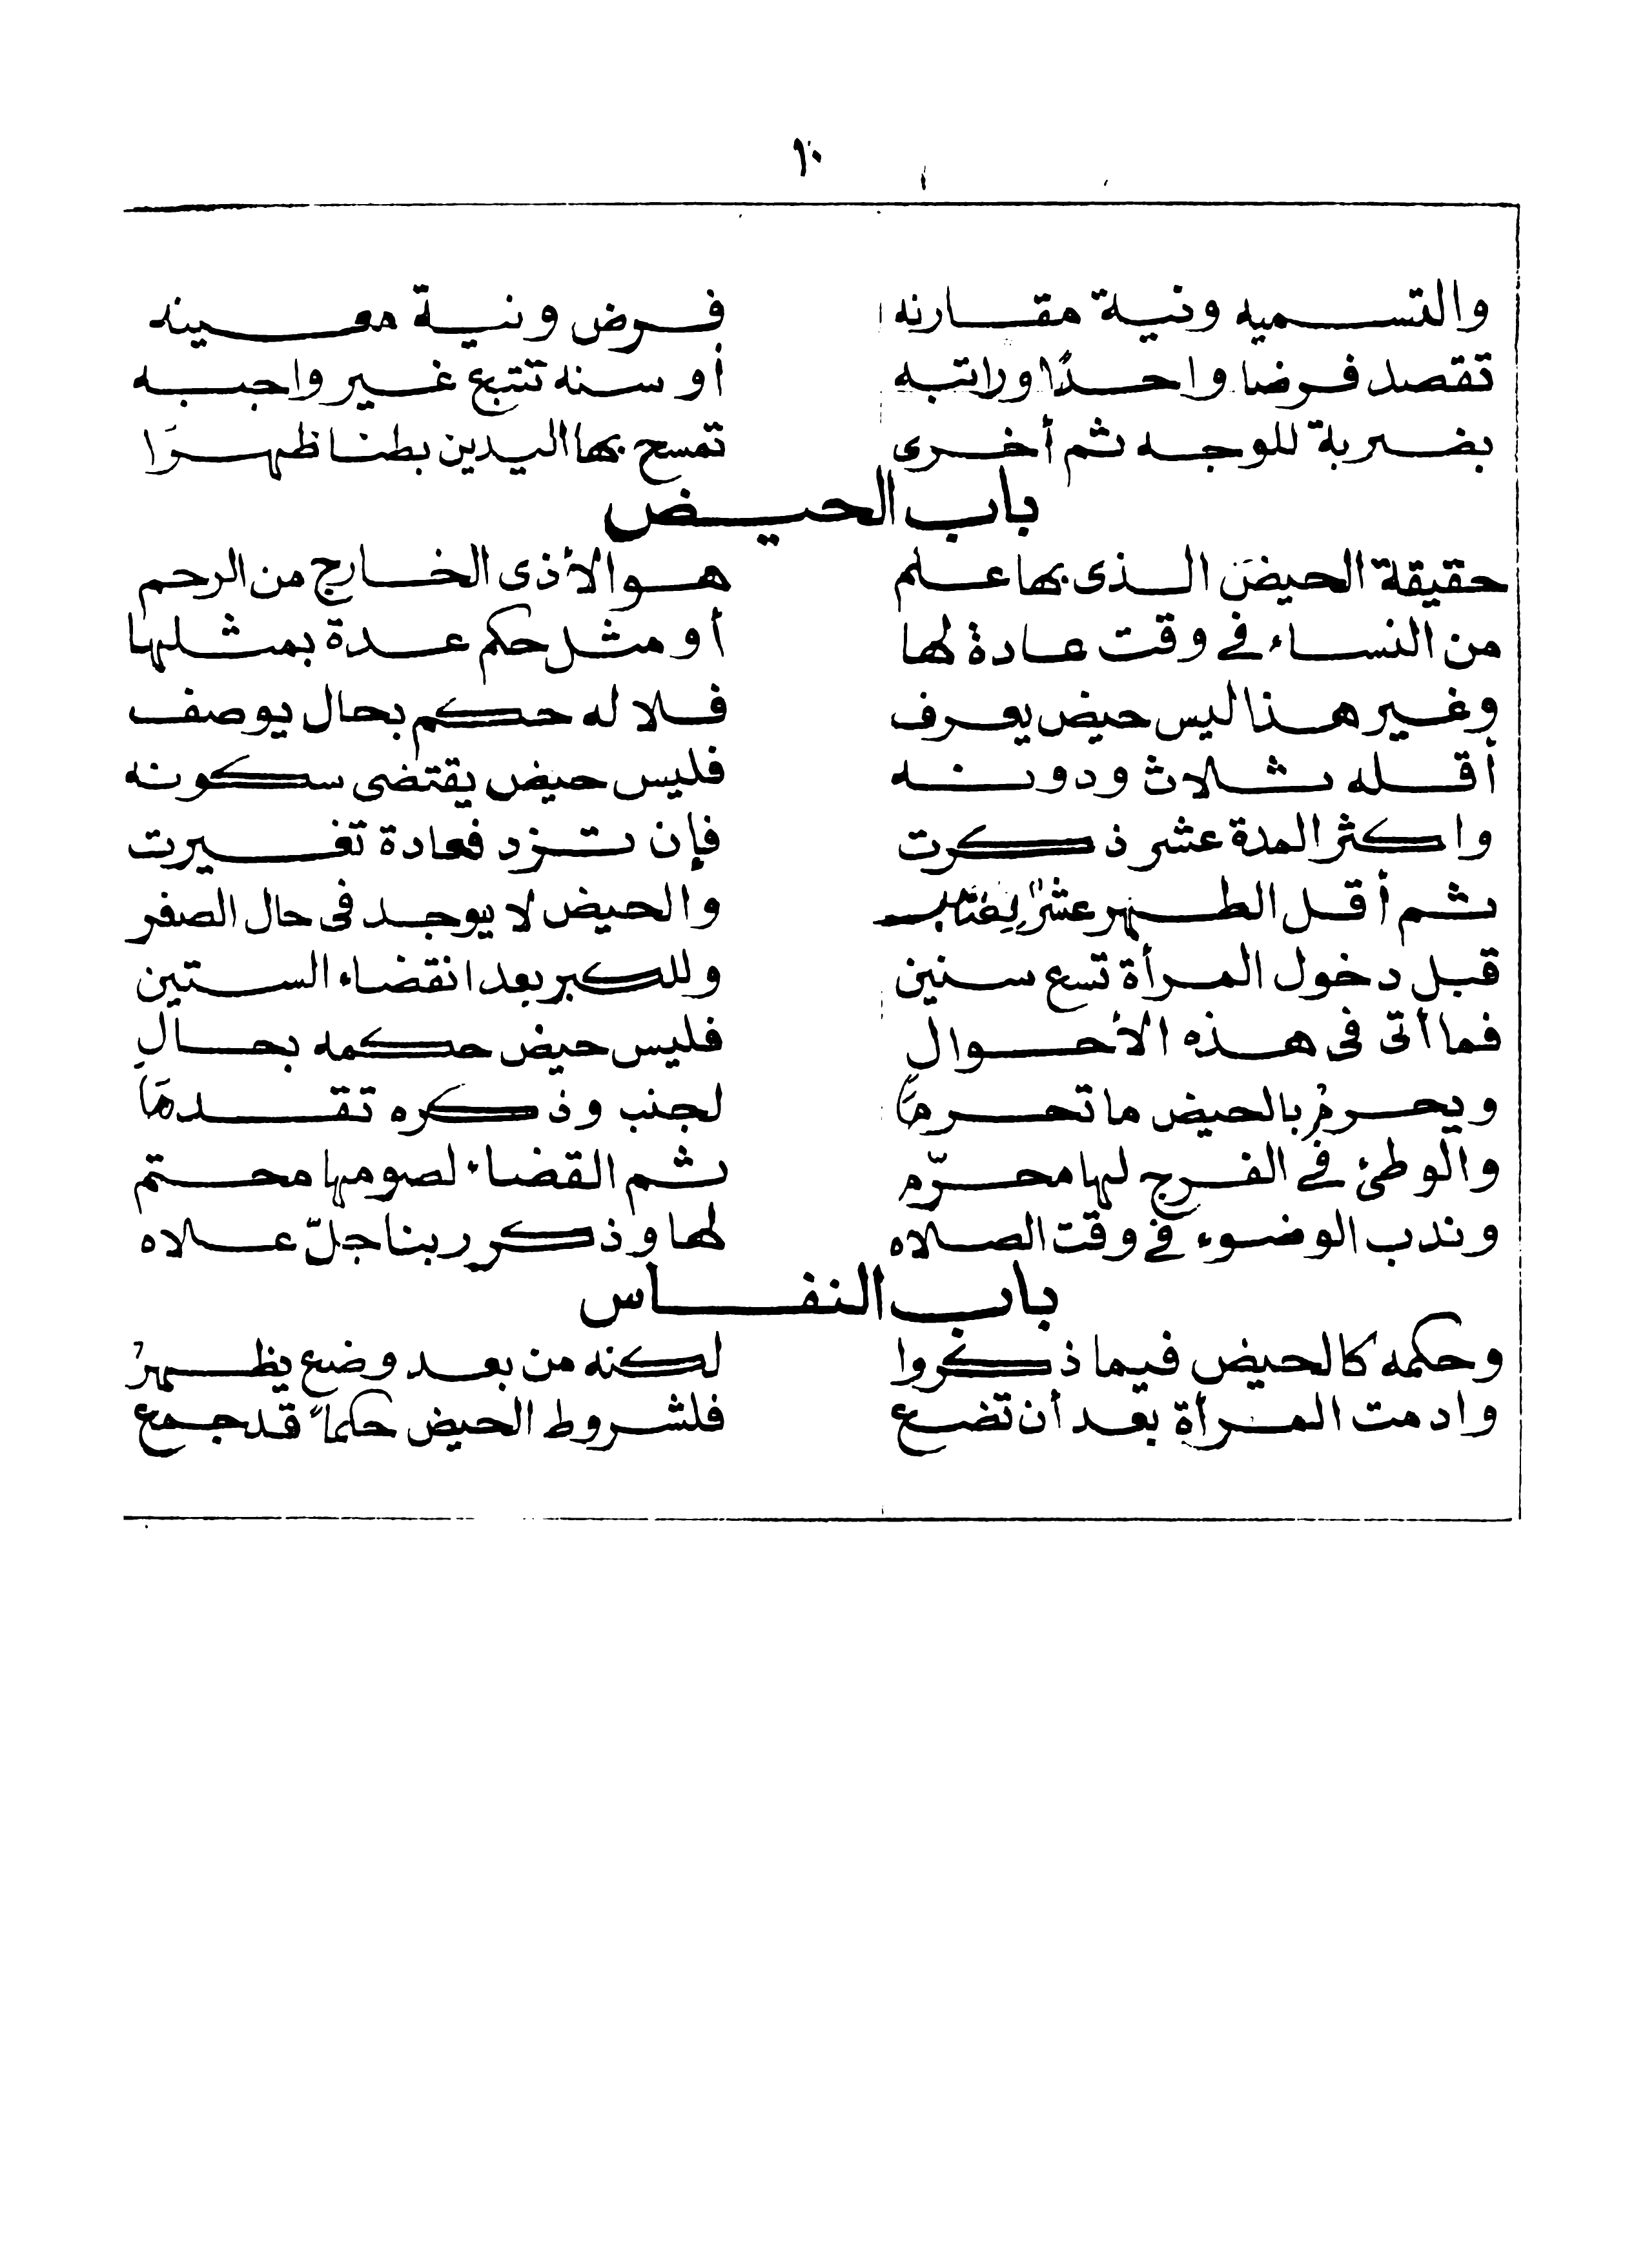 ١٠
والتسميه ونية مقارنه فرض ونية معينه
تقصد فرضا واحدًا وراتبه أو سنه تتبع غير واجبه
بضربة للوجه ثم أخرى تمسح بها اليدين بطنا ظهرَا
باب الحيض
حقيقة الحيض الذى بها علم هو الأذى الخارج من الرحم
من النساء في وقت عادة لها أو مثل حكم عدة بمثلها
وغير هذا ليس حيض يعرف فلا له حكم بحال يوصف
أقله ثلاث ودونه فليس حيض يقتضى سكونه
واكثر المدة عشر ذكرت فإن تزد فعادة تغيرت
ثم أقل الطهر عشرٌ والحيض لا يوجد فى حال الصغر
قبل دخول المرأة تسع سنين وللكبر بعد انقضاء الستين
فما أتى فى هذه الأحوال فليس حيض حكمه بحالِ
ويحرمُ بالحيض ما تحرمَا لجنب وذكره تقدمَا
والوطئ في الفرج لها محرّم ثم القضاء لصومها محتم
وندب الوضوء في وقت الصلاه لها وذكر ربنا جلّ علاه
باب النفاس
وحكمه كالحيض فيما ذكروا لكنه من بعد وضع يظهرُ
وادمت المرأة بعد أن تضع فلشروط الحيض حكماً قد جمع